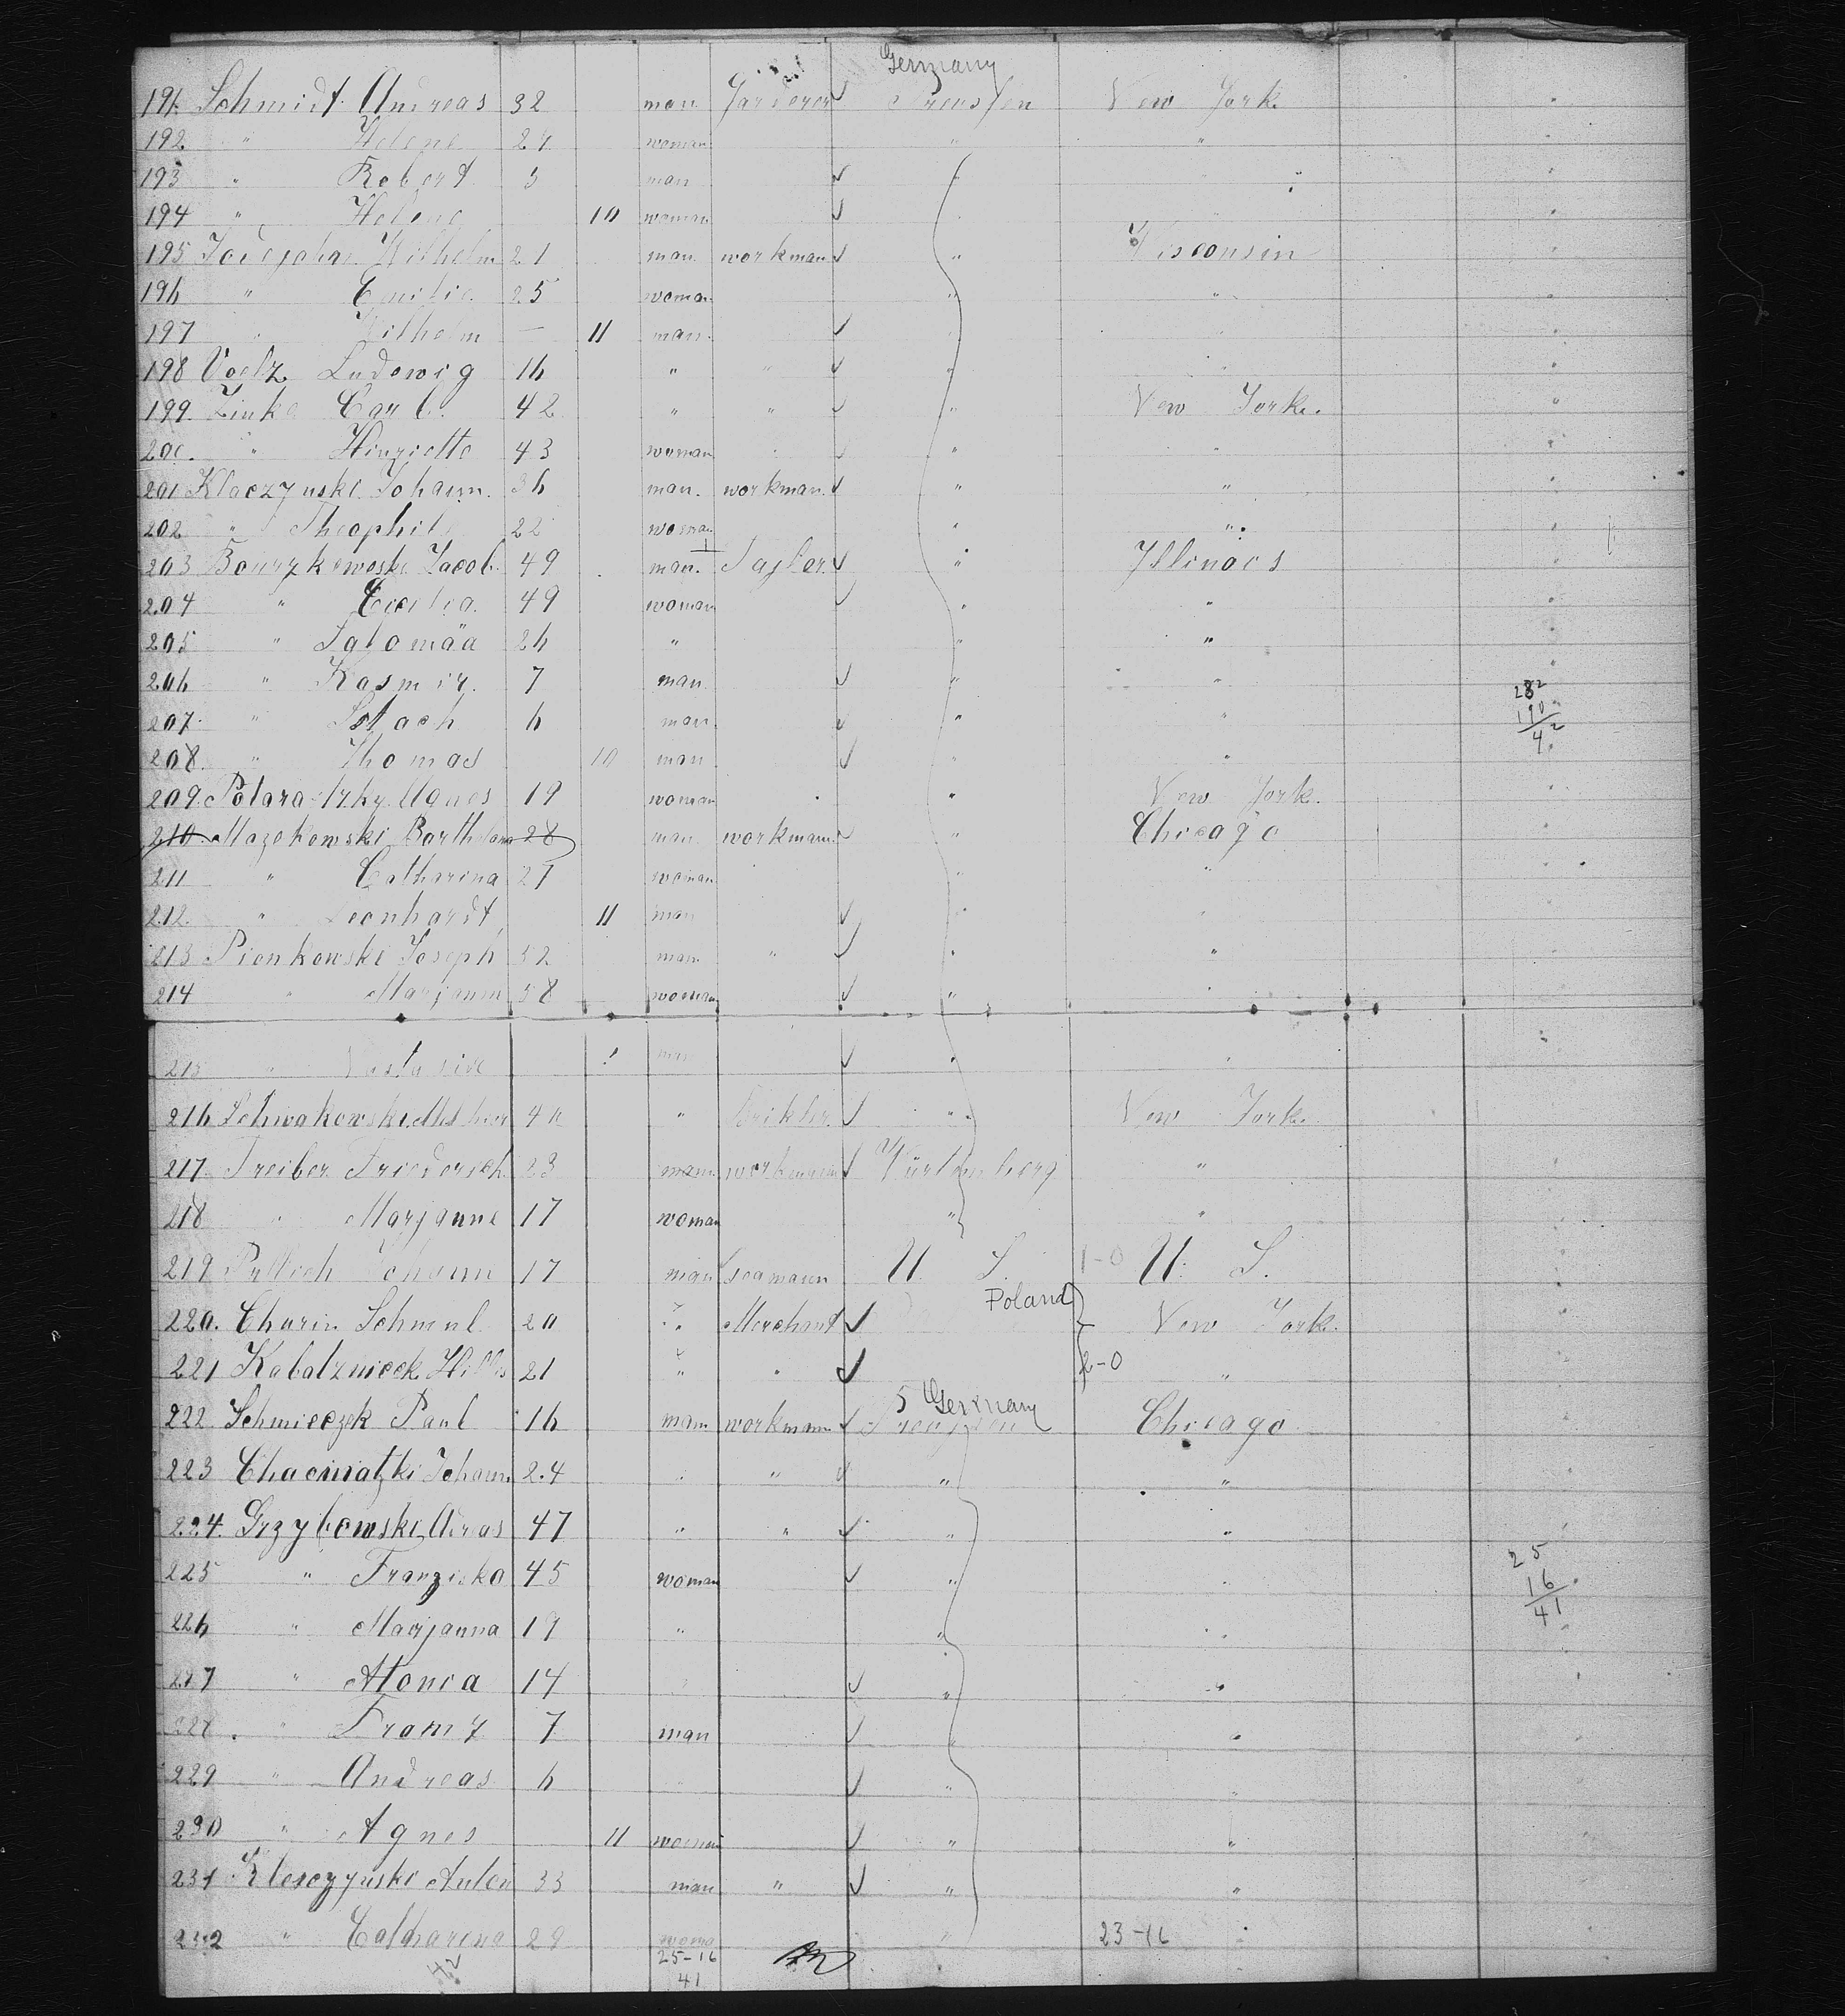 Germany
191. Schmidt Andreas 32 man Garderer Preussen New York
192 " Helene 27 woman " "
193 " Robert 3 man " "
194 " Helene 10 woman "
195 Wilhelm 21 man workman " Wisconsin
196 " Emilie 25 woman " "
197 " Wilhelm — 11 man " "
198 Voelz Ludewig 16 " " " "
199. Zinke Carl 42 " " " New York.
200. " Hinriette 43 woman " "
201 Klaczynski Johann. 36 man. workman. " "
202 " Theophil 22 woman " "
203 Jacob 49 man. Tayler " Yllinois
204 " Cicilia. 49 woman " "
205 " Salomäa 26 " " "
206 " Kasmir. 7 man " "
207. " Stach 6 man. " "
282
190
42
208. " Thomas 10 man " "
209. Agnes 19 woman " New York.
210. Mazokowski Barthelom 28 man workmann " Chicago
211 " Catharina 27 woman " "
212. " Leonhardt 11 man " "
213 Pienkowski Joseph 52 man " " "
214 " Marjann 58 woman " "
215 " man " "
216 40 " " New York.
217. Treiber Friederich 23 man workmann Würtemberg "
218 " Marjanne 17 woman " "
219 Johann 17 man seamann U. S. 1-0 U. S.
Poland
220. Charin Schmul 20 " Merchant New York.
221 21 " " 2-0 "
5 Germany
222 Schmieczek Paul 16 man workmann Preussen Chicago
223 Johann 24 " " " "
224. Grzybowski 47 " " " "
225 " Franziska 45 woman " "
25
16
41
226 " Marjanna 19 " " "
227 " 14 " " "
228. " Franz 7 man " "
229 " Andreas 6 " " "
230 " Agnes 11 woman " "
231 Klesczynski Anton 33 man " " "
232 " Catharina 29 woma " 23-16 "
42 25-16
41